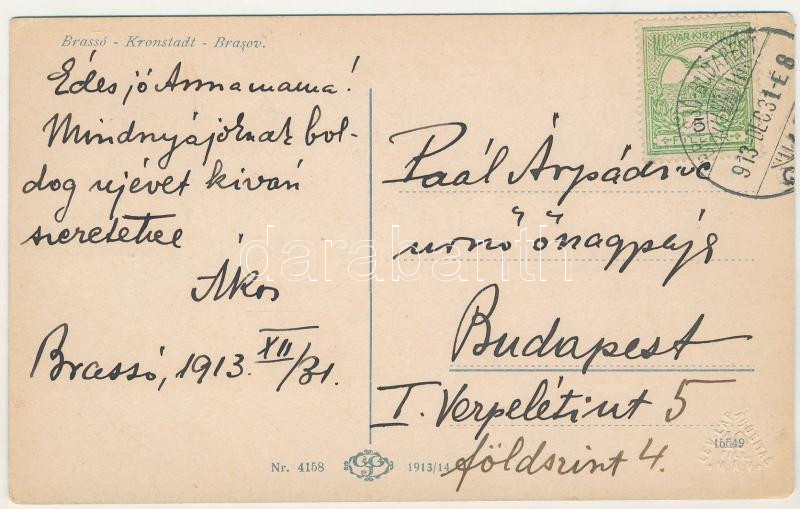 Brassó - Kronstadt - Brașov.
Édes jó Annamama!
Mindnyájoknak bol-
dog ujévet kiván
szeretettel
Ákos
Brassó, 1913. XII/31.
MAGYAR KIR. POSTA
5
913 DEC 31 - E 8
Paál Árpádné
urnő őnagysága
Budapest
I. Verpeléti ut 5
földszint 4.
Nr. 4158
1913/14
15549
darabanth